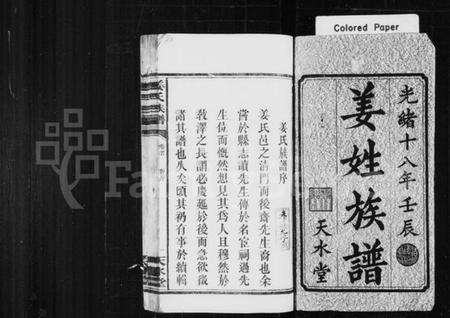 Colored Paper
光緒十八年壬辰
姜姓族譜
天水堂
姜氏族譜序
姜氏邑之清門而後齋先生裔也余
嘗於縣志讀先生傳於名宦祠過先
生位而慨然想見其為人且穆然於
教澤之長謂必慶延於後而急欲徵
諸其譜也久矣頃其衲有事於續輯
天水堂